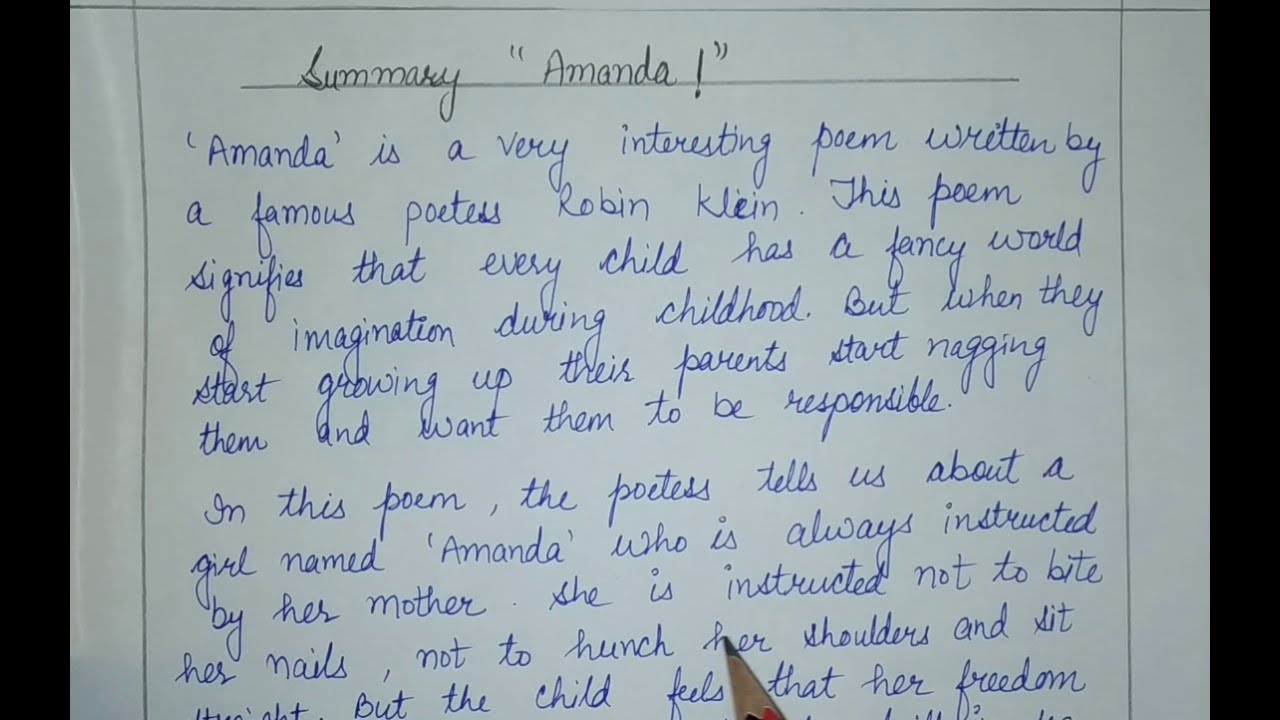 Summary "Amanda!"
'Amanda' is a very interesting poem written by
a famous poetess Robin Klein. This poem
signifies that every child has a fancy world
of imagination during childhood. But when they
start growing up their parents start nagging
them and want them to be responsible.
In this poem, the poetess tells us about a
girl named 'Amanda' who is always instructed
by her mother. She is instructed not to bite
her nails, not to hunch her shoulders and sit
But the child feels that her freedom